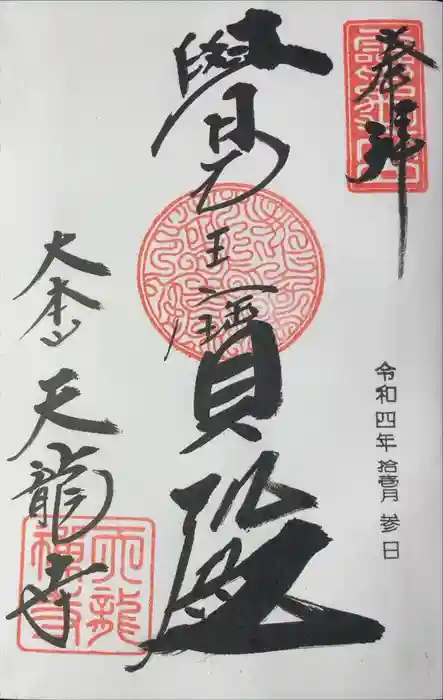 奉拝
令和四年拾壹月参日
覺王寶殿
大本山天龍寺
天龍禅寺